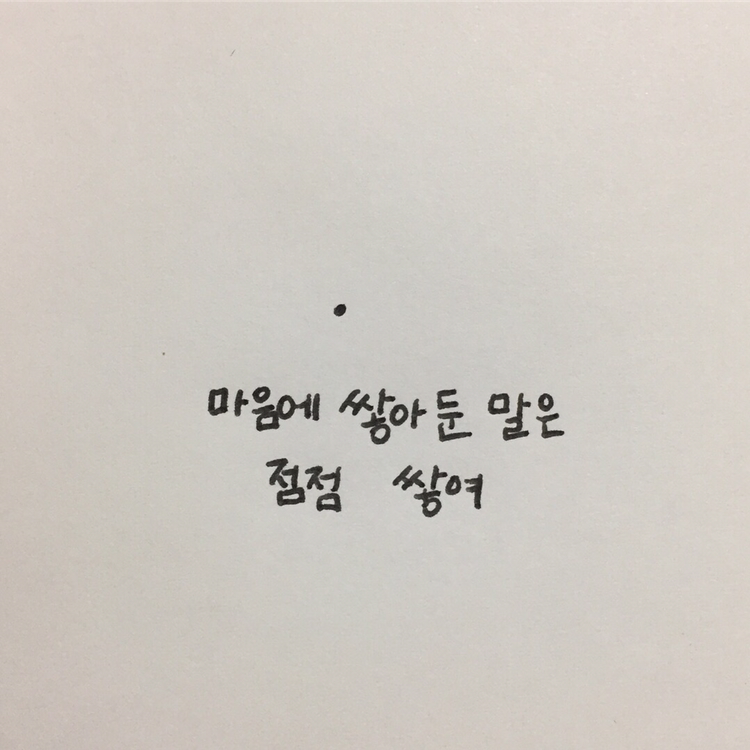 마음에 쌓아둔 말은
점점 쌓여